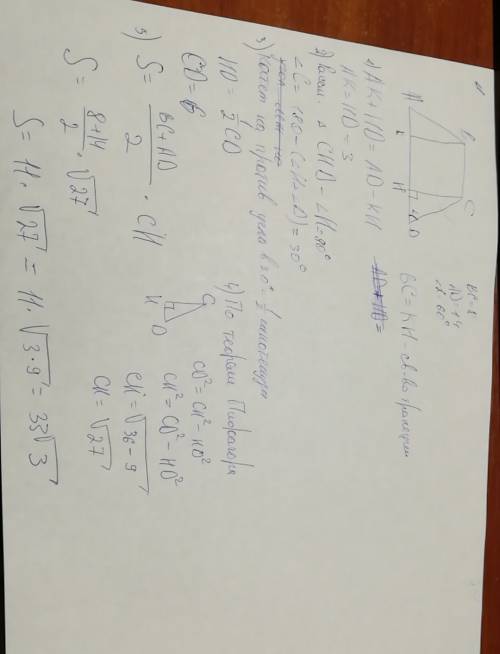 BC=8
AD=14
∠ 60°
A B C D K H
1) AK+HD=AD-KH BC=KH - св-во трапеции
AK=HD=3
2) Рассм. Δ CHD - ∠H=90°
∠C=180-(∠H+∠D)=30°
3) Катет на против угла в 30°=½ гипотенузы
HD=½CD
CD=6
4) По теореме Пифагора
C H D
CD²=CH²-HD²
CH²=CD²-HD²
CH=√36-9
CH=√27
5) S=BC+AD/2·CH
S=8+14/2·√27
S=11·√27=11·√3·9=33√3